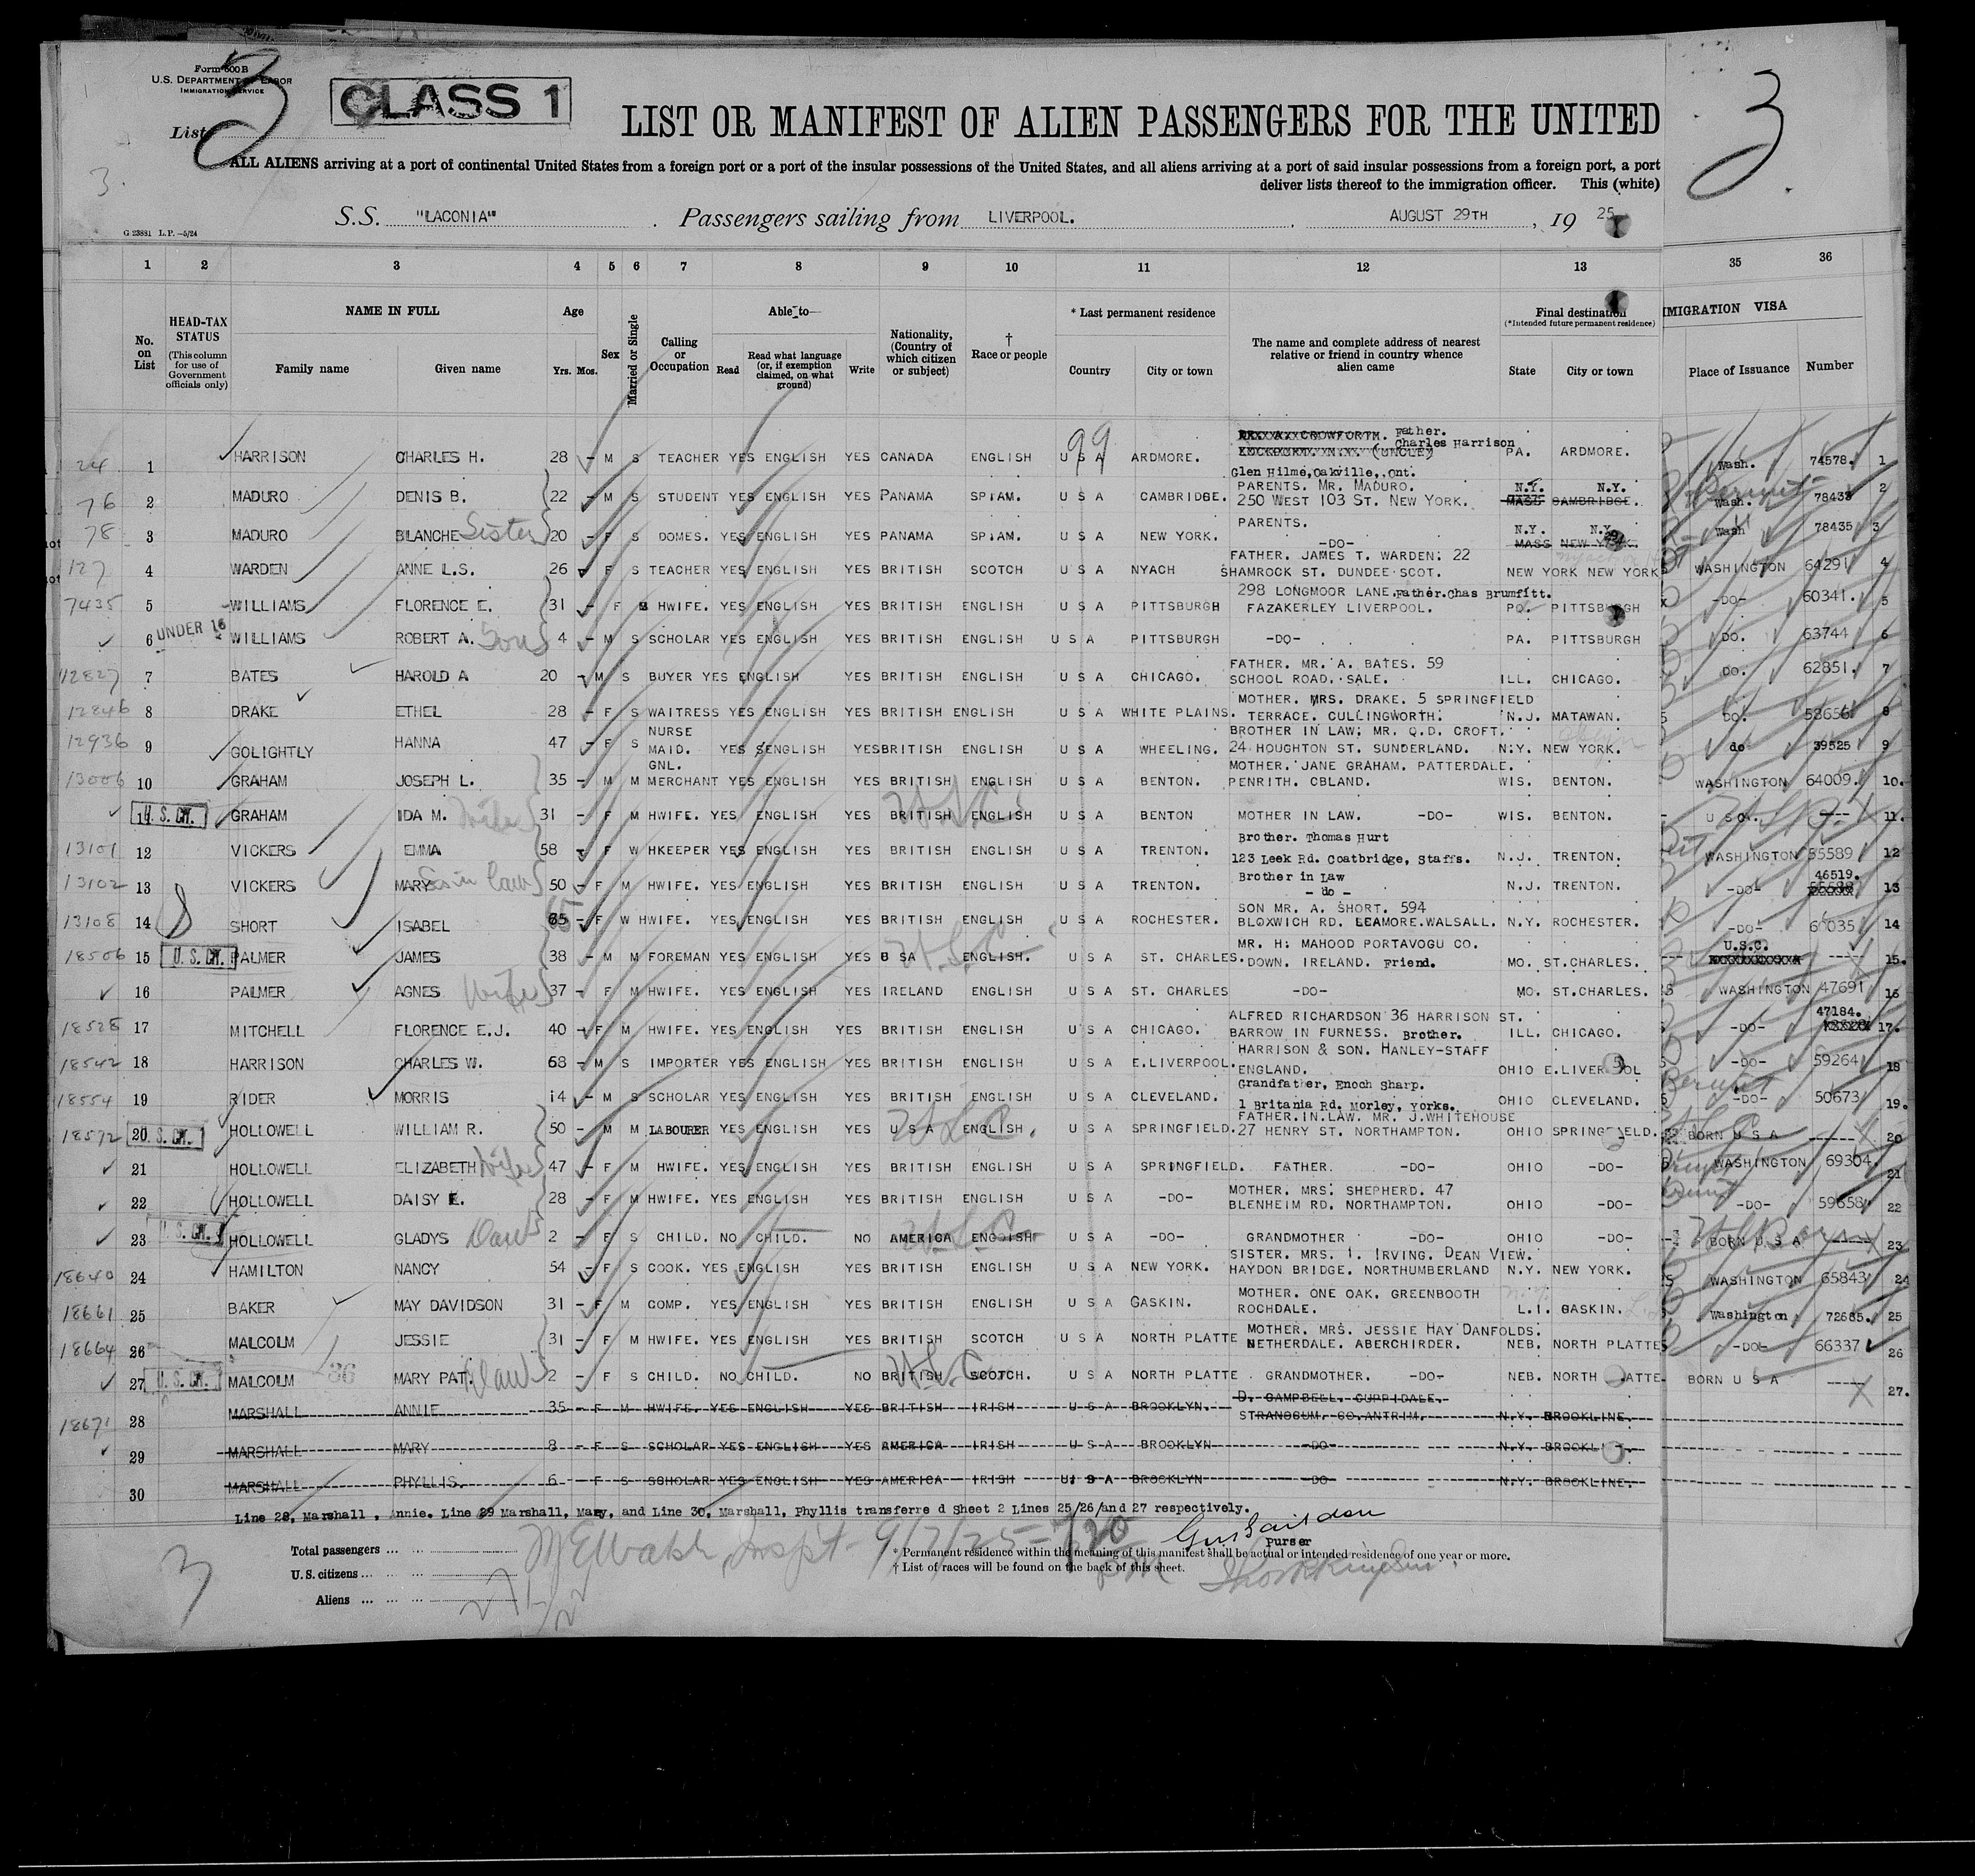 Form 500 B
U.S. DEPARTMENT OF LABOR
IMMIGRATION SERVICE
List 3
CLASS 1
LIST OR MANIFEST OF ALIEN PASSENGERS FOR THE UNITED
3
3.
ALL ALIENS arriving at a port of continental United States from a foreign port or a port of the insular possessions of the United States, and all aliens arriving at a port of said insular possessions from a foreign port, a port
deliver lists thereof to the immigration officer. This (white)
S.S. "LACONIA" Passengers sailing from LIVERPOOL. AUGUST 29TH, 19 25
G 23881 L.P.-5/24
1 2 3 4 5 6 7 8 9 10 11 12 13 35 36
No. on List
HEAD-TAX STATUS (This column for use of Government officials only)
NAME IN FULL Family name Given name
Age Yrs. Mos.
Sex
Married or Single
Calling or Occupation
Able to— Read Read what language (or, if exemption claimed, on what ground) Write
Nationality, (Country of which citizen or subject)
† Race or people
* Last permanent residence Country City or town
The name and complete address of nearest relative or friend in country whence alien came
Final destination (*Intended future permanent residence) State City or town
MIGRATION VISA Place of Issuance Number
99
24 1 HARRISON CHARLES H. 28 - M S TEACHER YES ENGLISH YES CANADA ENGLISH U S A ARDMORE. Father. Charles Harrison (UNCLE) Glen Hilme, Oakville, Ont. PA. ARDMORE. Wash. 74578. 1
76 2 MADURO DENIS B. 22 - M S STUDENT YES ENGLISH YES PANAMA SPIAM. U S A CAMBRIDGE. PARENTS. MR. MADURO. 250 WEST 103 ST. NEW YORK. N.Y. N.Y. MASS CAMBRIDGE. Wash. 78433 2
78 3 MADURO BLANCHE Sister 20 - F S DOMES. YES ENGLISH YES PANAMA SPIAM. U S A NEW YORK. PARENTS. -DO- N.Y. N.Y. MASS NEW YORK. Wash 78435 3
127 4 WARDEN ANNE L.S. 26 - F S TEACHER YES ENGLISH YES BRITISH SCOTCH U S A NYACH FATHER. JAMES T. WARDEN: 22 SHAMROCK ST. DUNDEE SCOT. NEW YORK NEW YORK WASHINGTON 64291 4
7435 5 WILLIAMS FLORENCE E. 31 - F M HWIFE. YES ENGLISH YES BRITISH ENGLISH U S A PITTSBURGH 298 LONGMOOR LANE. Father. Chas Brumfitt. FAZAKERLEY LIVERPOOL. PA. PITTSBURGH -DO- 60341. 5
6 UNDER 16 WILLIAMS ROBERT A. Son 4 - M S SCHOLAR YES ENGLISH YES BRITISH ENGLISH U S A PITTSBURGH -DO- PA. PITTSBURGH DO. 63744 6
12827 7 BATES HAROLD A 20 - M S BUYER YES ENGLISH YES BRITISH ENGLISH U S A CHICAGO. FATHER. MR. A. BATES. 59 SCHOOL ROAD. SALE. ILL. CHICAGO. DO. 62851. 7
12846 8 DRAKE ETHEL 28 - F S WAITRESS YES ENGLISH YES BRITISH ENGLISH U S A WHITE PLAINS. MOTHER. MRS. DRAKE. 5 SPRINGFIELD TERRACE. CULLINGWORTH. N.J. MATAWAN. DO. 58656 8
12936 9 GOLIGHTLY HANNA 47 - F S NURSE MAID. YES ENGLISH YES BRITISH ENGLISH U S A WHEELING. BROTHER IN LAW; MR. Q.D. CROFT. 24 HOUGHTON ST. SUNDERLAND. N.Y. NEW YORK. do 39525 9
13006 10 GRAHAM JOSEPH L. 35 - M M GNL. MERCHANT YES ENGLISH YES BRITISH ENGLISH U S A BENTON. MOTHER. JANE GRAHAM. PATTERDALE. PENRITH. CBLAND. WIS. BENTON. WASHINGTON 64009. 10.
11 U. S. CIT. GRAHAM IDA M. Wife 31 - F M HWIFE. YES ENGLISH YES BRITISH ENGLISH U S A BENTON MOTHER IN LAW. -DO- WIS. BENTON. U S C. ---- 11.
13101 12 VICKERS EMMA 58 - F W HKEEPER YES ENGLISH YES BRITISH ENGLISH U S A TRENTON. Brother. Thomas Hurt 123 Leek Rd. Coatbridge, Staffs. N.J. TRENTON. WASHINGTON 55589 12
13102 13 VICKERS MARY Sis in law 50 - F M HWIFE. YES ENGLISH YES BRITISH ENGLISH U S A TRENTON. Brother in Law - do - N.J. TRENTON. -DO- 46519. 13
13108 14 SHORT ISABEL 65 - F W HWIFE. YES ENGLISH YES BRITISH ENGLISH U S A ROCHESTER. SON MR. A. SHORT. 594 BLOXWICH RD. LEAMORE. WALSALL. N.Y. ROCHESTER. -DO- 60035 14
18506 15 U. S. CIT. PALMER JAMES 38 - M M FOREMAN YES ENGLISH YES U SA U.S.C. ENGLISH. U S A ST. CHARLES. MR. H. MAHOOD PORTAVOGU CO. DOWN. IRELAND. Friend. MO. ST.CHARLES. U.S.C. ----- 15.
16 PALMER AGNES Wife 37 - F M HWIFE. YES ENGLISH YES IRELAND ENGLISH U S A ST. CHARLES -DO- MO. ST.CHARLES. WASHINGTON 47691 16
18528 17 MITCHELL FLORENCE E.J. 40 - F M HWIFE. YES ENGLISH YES BRITISH ENGLISH U S A CHICAGO. ALFRED RICHARDSON 36 HARRISON ST. BARROW IN FURNESS. Brother. ILL. CHICAGO. -DO- 47184. 17.
18542 18 HARRISON CHARLES W. 68 - M S IMPORTER YES ENGLISH YES BRITISH ENGLISH U S A E.LIVERPOOL. HARRISON & SON. HANLEY-STAFF ENGLAND. OHIO E.LIVERPOOL -DO- 59264 18
18554 19 RIDER MORRIS 14 - M S SCHOLAR YES ENGLISH YES BRITISH ENGLISH U S A CLEVELAND. Grandfather, Enoch Sharp. 1 Britania Rd. Morley, Yorks. OHIO CLEVELAND. -DO- 50673 19.
18572 20 U. S. CIT. HOLLOWELL WILLIAM R. 50 - M M LABOURER YES ENGLISH YES U S A ENGLISH. U S A SPRINGFIELD. FATHER.IN.LAW. MR. J.WHITEHOUSE 27 HENRY ST. NORTHAMPTON. OHIO SPRINGFIELD. BORN U S A ----- 20
21 HOLLOWELL ELIZABETH Wife 47 - F M HWIFE. YES ENGLISH YES BRITISH ENGLISH U S A SPRINGFIELD. FATHER. -DO- OHIO -DO- WASHINGTON 69304 21
22 HOLLOWELL DAISY E. 28 - F M HWIFE. YES ENGLISH YES BRITISH ENGLISH U S A -DO- MOTHER. MRS. SHEPHERD. 47 BLENHEIM RD. NORTHAMPTON. OHIO -DO- -DO- 59658 22
23 U. S. CIT. HOLLOWELL GLADYS Daut 2 - F S CHILD. NO CHILD. NO AMERICA ENGLISH U S A -DO- GRANDMOTHER -DO- OHIO -DO- BORN U S A ----- 23
18640 24 HAMILTON NANCY 54 - F S COOK. YES ENGLISH YES BRITISH ENGLISH U S A NEW YORK. SISTER. MRS. I. IRVING. DEAN VIEW. HAYDON BRIDGE. NORTHUMBERLAND N.Y. NEW YORK. WASHINGTON 65843 24
18661 25 BAKER MAY DAVIDSON 31 - F M COMP. YES ENGLISH YES BRITISH ENGLISH U S A GASKIN. MOTHER. ONE OAK. GREENBOOTH ROCHDALE. L.I. GASKIN. Washington. 72665. 25
18664 26 MALCOLM JESSIE 31 - F M HWIFE. YES ENGLISH YES BRITISH SCOTCH U S A NORTH PLATTE MOTHER. MRS. JESSIE HAY DANFOLDS. NETHERDALE. ABERCHIRDER. NEB. NORTH PLATTE -DO- 66337 26
27 U. S. CIT. MALCOLM MARY PAT. Daut 2 - F S CHILD. NO CHILD. NO BRITISH SCOTCH. U S A NORTH PLATTE GRANDMOTHER. -DO- NEB. NORTH PLATTE. BORN U S A ---- 27.
18671 28 MARSHALL ANNIE 35 - F M HWIFE. YES ENGLISH YES BRITISH IRISH U S A BROOKLYN. D. CAMPBELL. CURRIDALE. STRANOCUM. CO.ANTRIM. N.Y. BROOKLINE.
29 MARSHALL MARY 8 - F S SCHOLAR YES ENGLISH YES AMERICA IRISH U S A BROOKLYN -DO- N.Y. BROOKLINE.
30 MARSHALL PHYLLIS. 6 - F S SCHOLAR YES ENGLISH YES AMERICA IRISH U S A BROOKLYN -DO- N.Y. BROOKLINE.
Line 28, Marshall , Annie. Line 29 Marshall, Mary, and Line 30, Marshall, Phyllis transferre d Sheet 2 Lines 25/26/and 27 respectively.
purser
Total passengers
U.S. citizens
Aliens
Inspt - 9/7/25 = 720 PM
* Permanent residence within the meaning of this manifest shall be actual or intended residence of one year or more.
† List of races will be found on the back of this sheet.
3